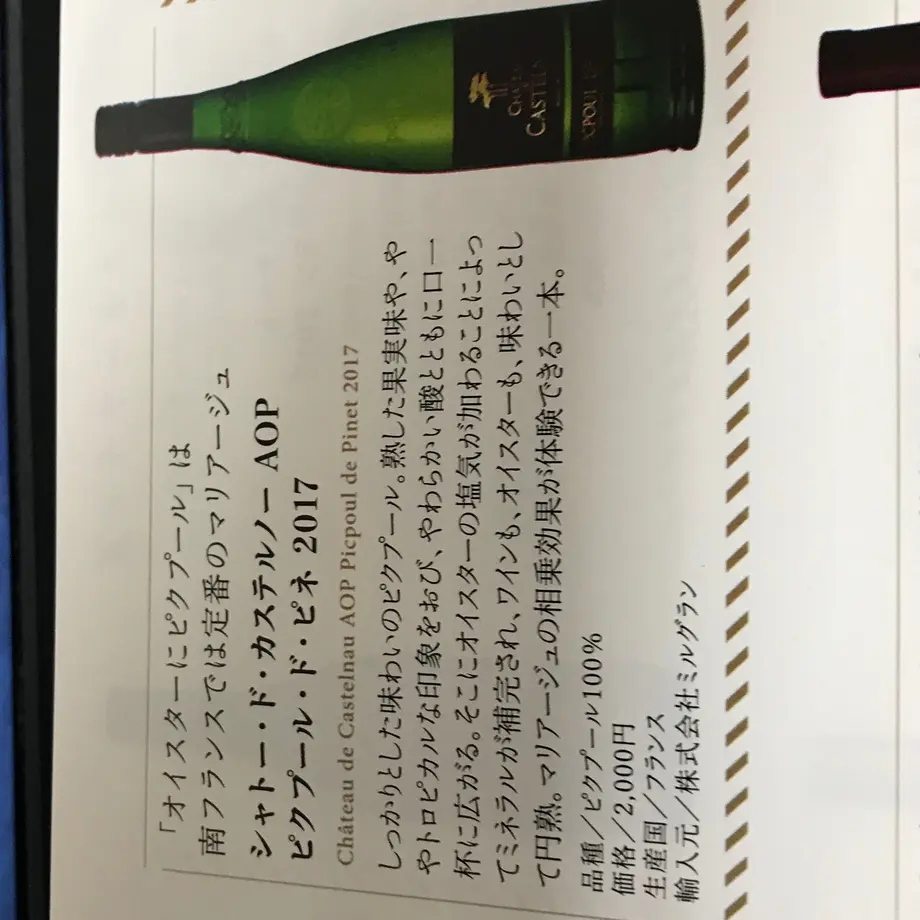 「オイスターにピクプール」は
南フランスでは定番のマリアージュ
シャトー・ド・カステルノー AOP
ピクプール・ド・ピネ 2017
Château de Castelnau AOP Picpoul de Pinet 2017
しっかりとした味わいのピクプール。熟した果実味や、や
やトロピカルな印象をおび、やわらかい酸とともに口一
杯に広がる。そこにオイスターの塩気が加わることによっ
てミネラルが補完され、ワインも、オイスターも、味わいとし
て円熟。マリアージュの相乗効果が体験できる一本。
品種/ピクプール100%
価格/2,000円
生産国/フランス
輸入元/株式会社ミルグラン
CASTELN